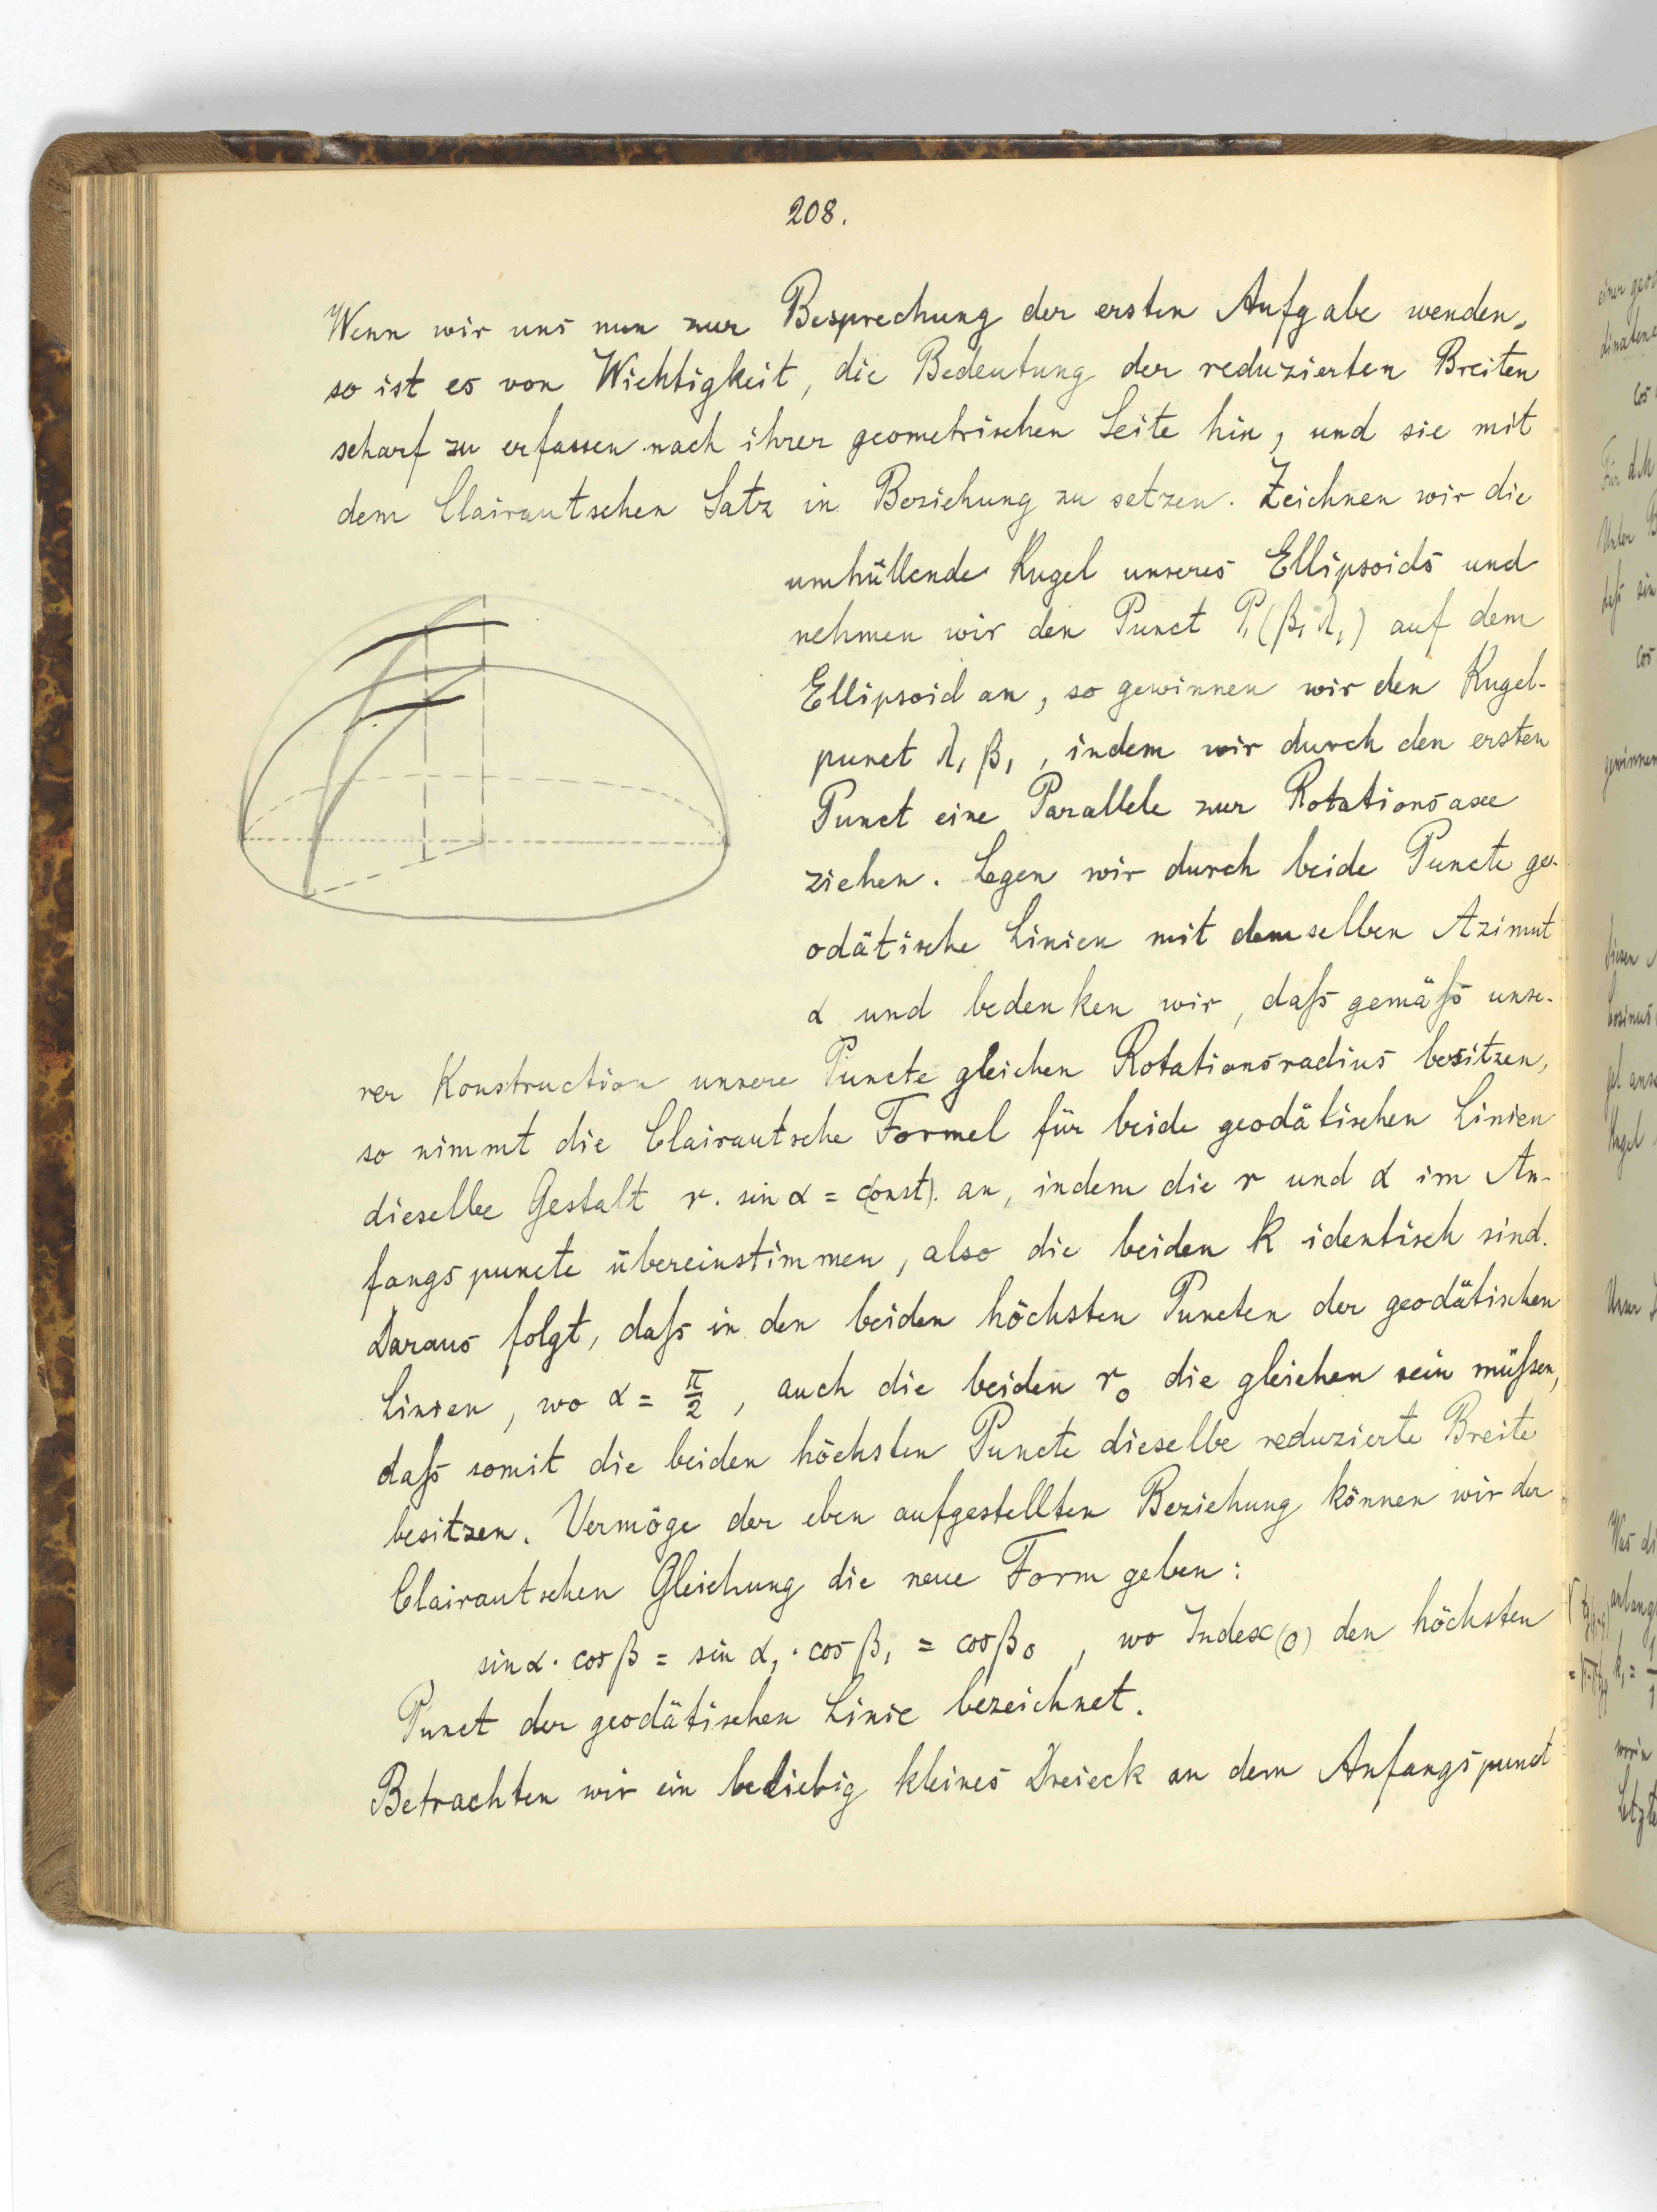 208.
Wenn wir uns nun zur Besprechung der ersten Aufgabe wenden,
so ist es von Wichtigkeit, die Bedeutung der reduzierten Breiten
scharf zu erfassen nach ihrer geometrischen Seite hin, und sie mit
dem Clairautschen Satz in Beziehung zu setzen. Zeichnen wir die
umhüllende Kugel unseres Ellipsoids und
nehmen wir den Punct P₁(β₁ λ₁) auf dem
Ellipsoid an, so gewinnen wir den Kugel-
punct λ₁ β₁, indem wir durch den ersten
Punct eine Parallele zur Rotationsaxe
ziehen. Legen wir durch beide Puncte ge-
odätische Linien mit demselben Azimut
α und bedenken wir, daſs gemäſs unse-
rer Konstruction unsere Puncte gleichen Rotationsradius besitzen,
so nimmt die Clairautsche Formel für beide geodätischen Linien
dieselbe Gestalt r. sin α = const. an, indem die r und α im An-
fangspuncte übereinstimmen, also die beiden k identisch sind.
Daraus folgt, daſs in den beiden höchsten Puncten der geodätischen
Linien, wo α = π/2, auch die beiden r₀ die gleichen sein müſsen,
daſs somit die beiden höchsten Puncte dieselbe reduzierte Breite
besitzen. Vermöge der eben aufgestellten Beziehung können wir der
Clairautschen Gleichung die neue Form geben:
sin α · cos β = sin α₁ · cos β₁ = cos β₀, wo Index (0) den höchsten
Punct der geodätischen Linie bezeichnet.
Betrachten wir ein beliebig kleines Dreieck an dem Anfangspunct